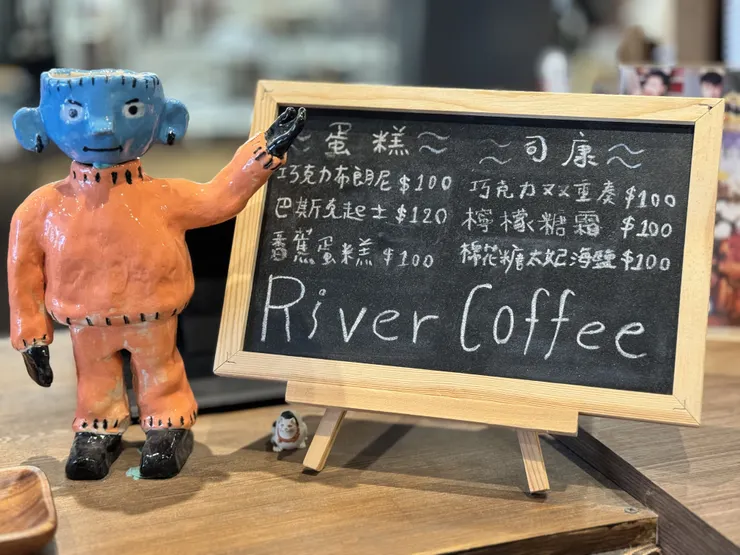 ~蛋糕~
巧克力布朗尼 $100
巴斯克起士 $120
香蕉蛋糕 $100
~司康~
巧克力双重奏 $100
檸檬糖霜 $100
棉花糖太妃海鹽 $100
River Coffee